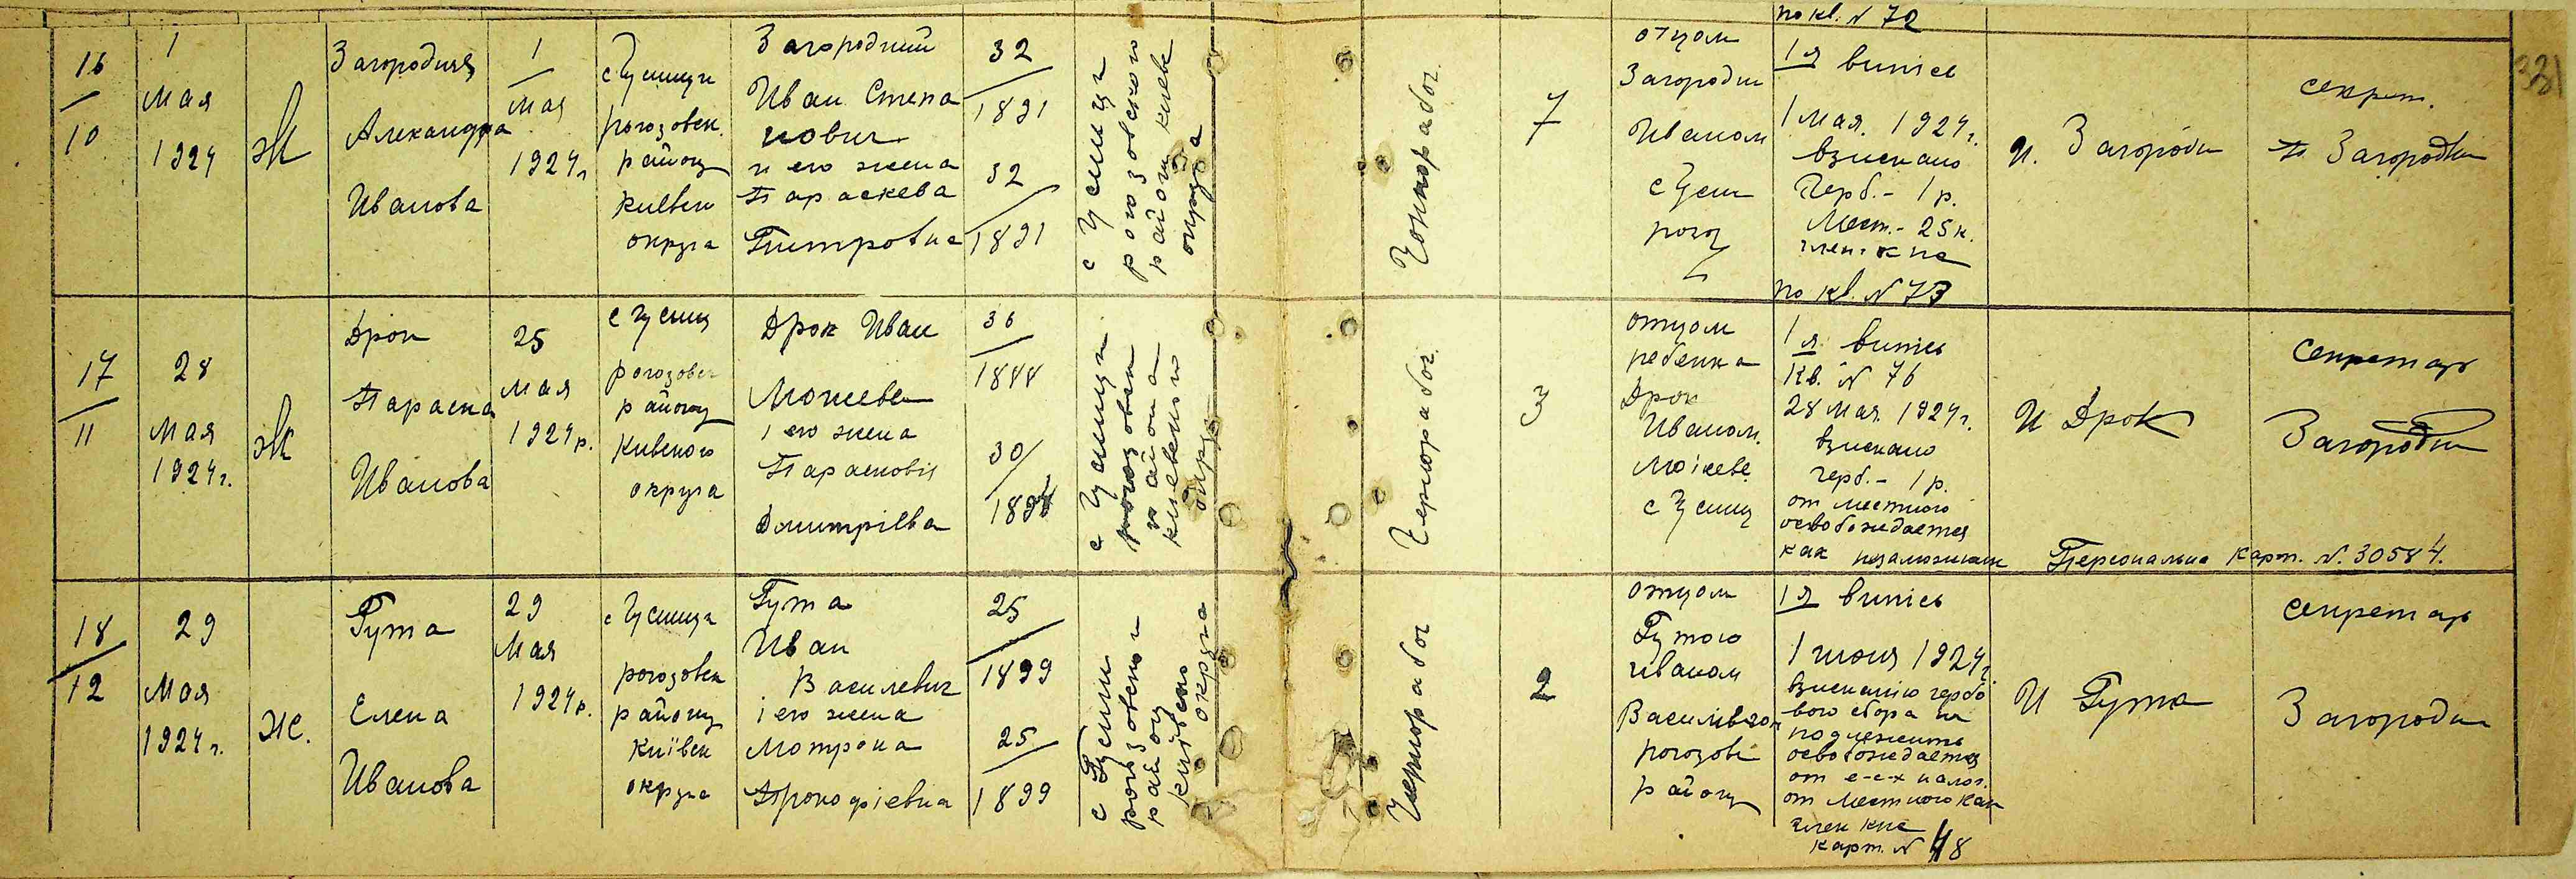 по кв. N 72
331
16/10
1
мая
1924
Ж
Загородняя
Александра
Иванова
1
мая
1924 г.
с Гусинци
рогозовск.
району
киевск
округа
Загородний
Иван Степа
нович
и его жена
Параскева
Питровна
32/1891
32/1891
с Гусинци
рогозовского
району киевс
округа
Чернорабоч.
7
отцом
Загородни
Иваном
с Гусин
рогоз
1я випись
1 мая. 1924 г.
взискано
Герб. - 1 р.
Мест. - 25 к.
член. кнс
по кв. N 73
И. Загородн
секрет.
Загородни
17/11
28
мая
1924 г.
Ж
Дрок
Параска
Иванова
25
мая
1924 р.
с Гусинц
рогозовск
району
Кивского
округа
Дрок Иван
Можеве
і его жена
Парасковія
Дмитріевна
36/1888
30/
1894
с Гусинци
рогозовск
района
киевского
округ
Чернорабоч.
3
отцом
ребенка
Дрок
Иваном.
с Гусинц
1я випись
Кв. N 76
28 мая. 1924 г.
взискано
герб. - 1 р.
от местного
освобождается
как незаможник
И Дрок
секретарь
Загородни
Персональна карт. N. 30584.
18/12
29
мая
1924 г.
Ж.
Гута
Елена
Иванова
29
мая
1924 р.
с Гусинца
рогозовск
району
Київск
округа
Гута
Иван
Василевич
і его жена
Мотрона
Прокофіевна
25/1899
25/1899
с Гусинци
рогозовского
району
київсько
округа
Чернорабоч
2
отцом
Гутою
иваном
Василівгом
рогозовс
району
1я випись
1 июня 1924 г.
взисканию гербо
вого сбора не
подлежить
освобождается
от е-с-х налог.
от местного как
член кнс
карт. N 48
И Гута
секретарь
Загородни